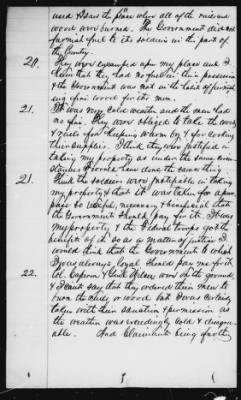 used & saw the place where all of the rails and
wood was burned. The Government did not
furnish fuel to its soldiers in this part of
the Country.
20. They were encamped upon my place and I
know that they had no fuel in their possession
& the Government was not in the habit of furnish
ing fire wood for the men.
21. It was very cold weather and the men had
no fire. They were obliged to take the wood
& rails for keeping warm by & for cooking
their supplies. I think they were justified in
taking my property as under the same circum
stances I would have done the same thing.
21. I think the soldiers were justifiable in taking
my property & that it was taken for a pur
pose so useful, necessary & beneficial that
the Government should pay for it. It was
my property & the Federal troops got the
benefit of it so as a matter of justice I
would think that the Government to which
I was always loyal should pay me for it
22. Col. Capron & Genl were on the ground
& I cant say that they ordered their men to
burn the rails or wood but it was certainly
taken with their sanction & permission as
the weather was exceedingly cold & disagree
able. And Claimant being further